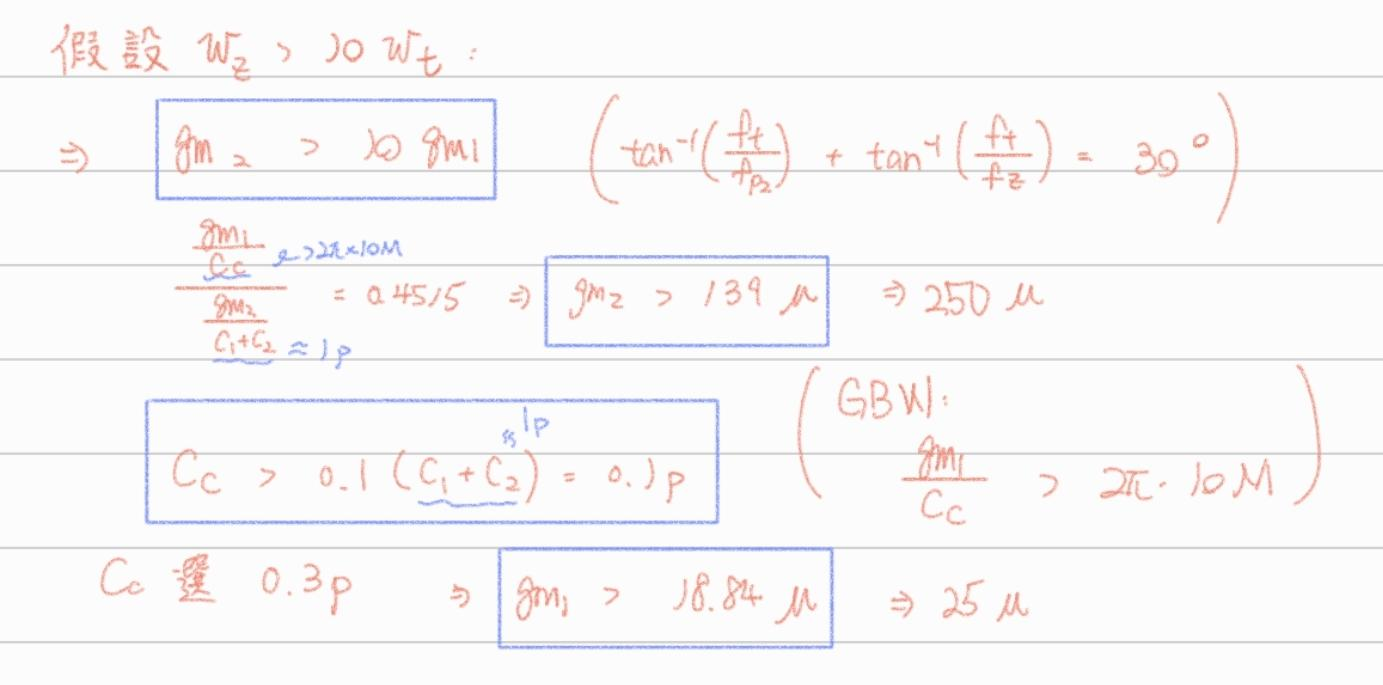 假設 Wz > 10 Wt :
⇒ gm2 > 10 gm1 ( tan⁻¹(ft/fp2) + tan⁻¹(ft/fz) = 30° )
(gm1/Cc)/(gm2/(C1+C2)) = 0.4515 ⇒ gm2 > 139 μ ⇒ 250 μ
> 2π×10M
≈ 1p
( GBW:
≈ 1p
Cc > 0.1 (C1+C2) = 0.1p
gm1/Cc > 2π · 10M )
Cc 選 0.3p ⇒ gm1 > 18.84 μ ⇒ 25 μ